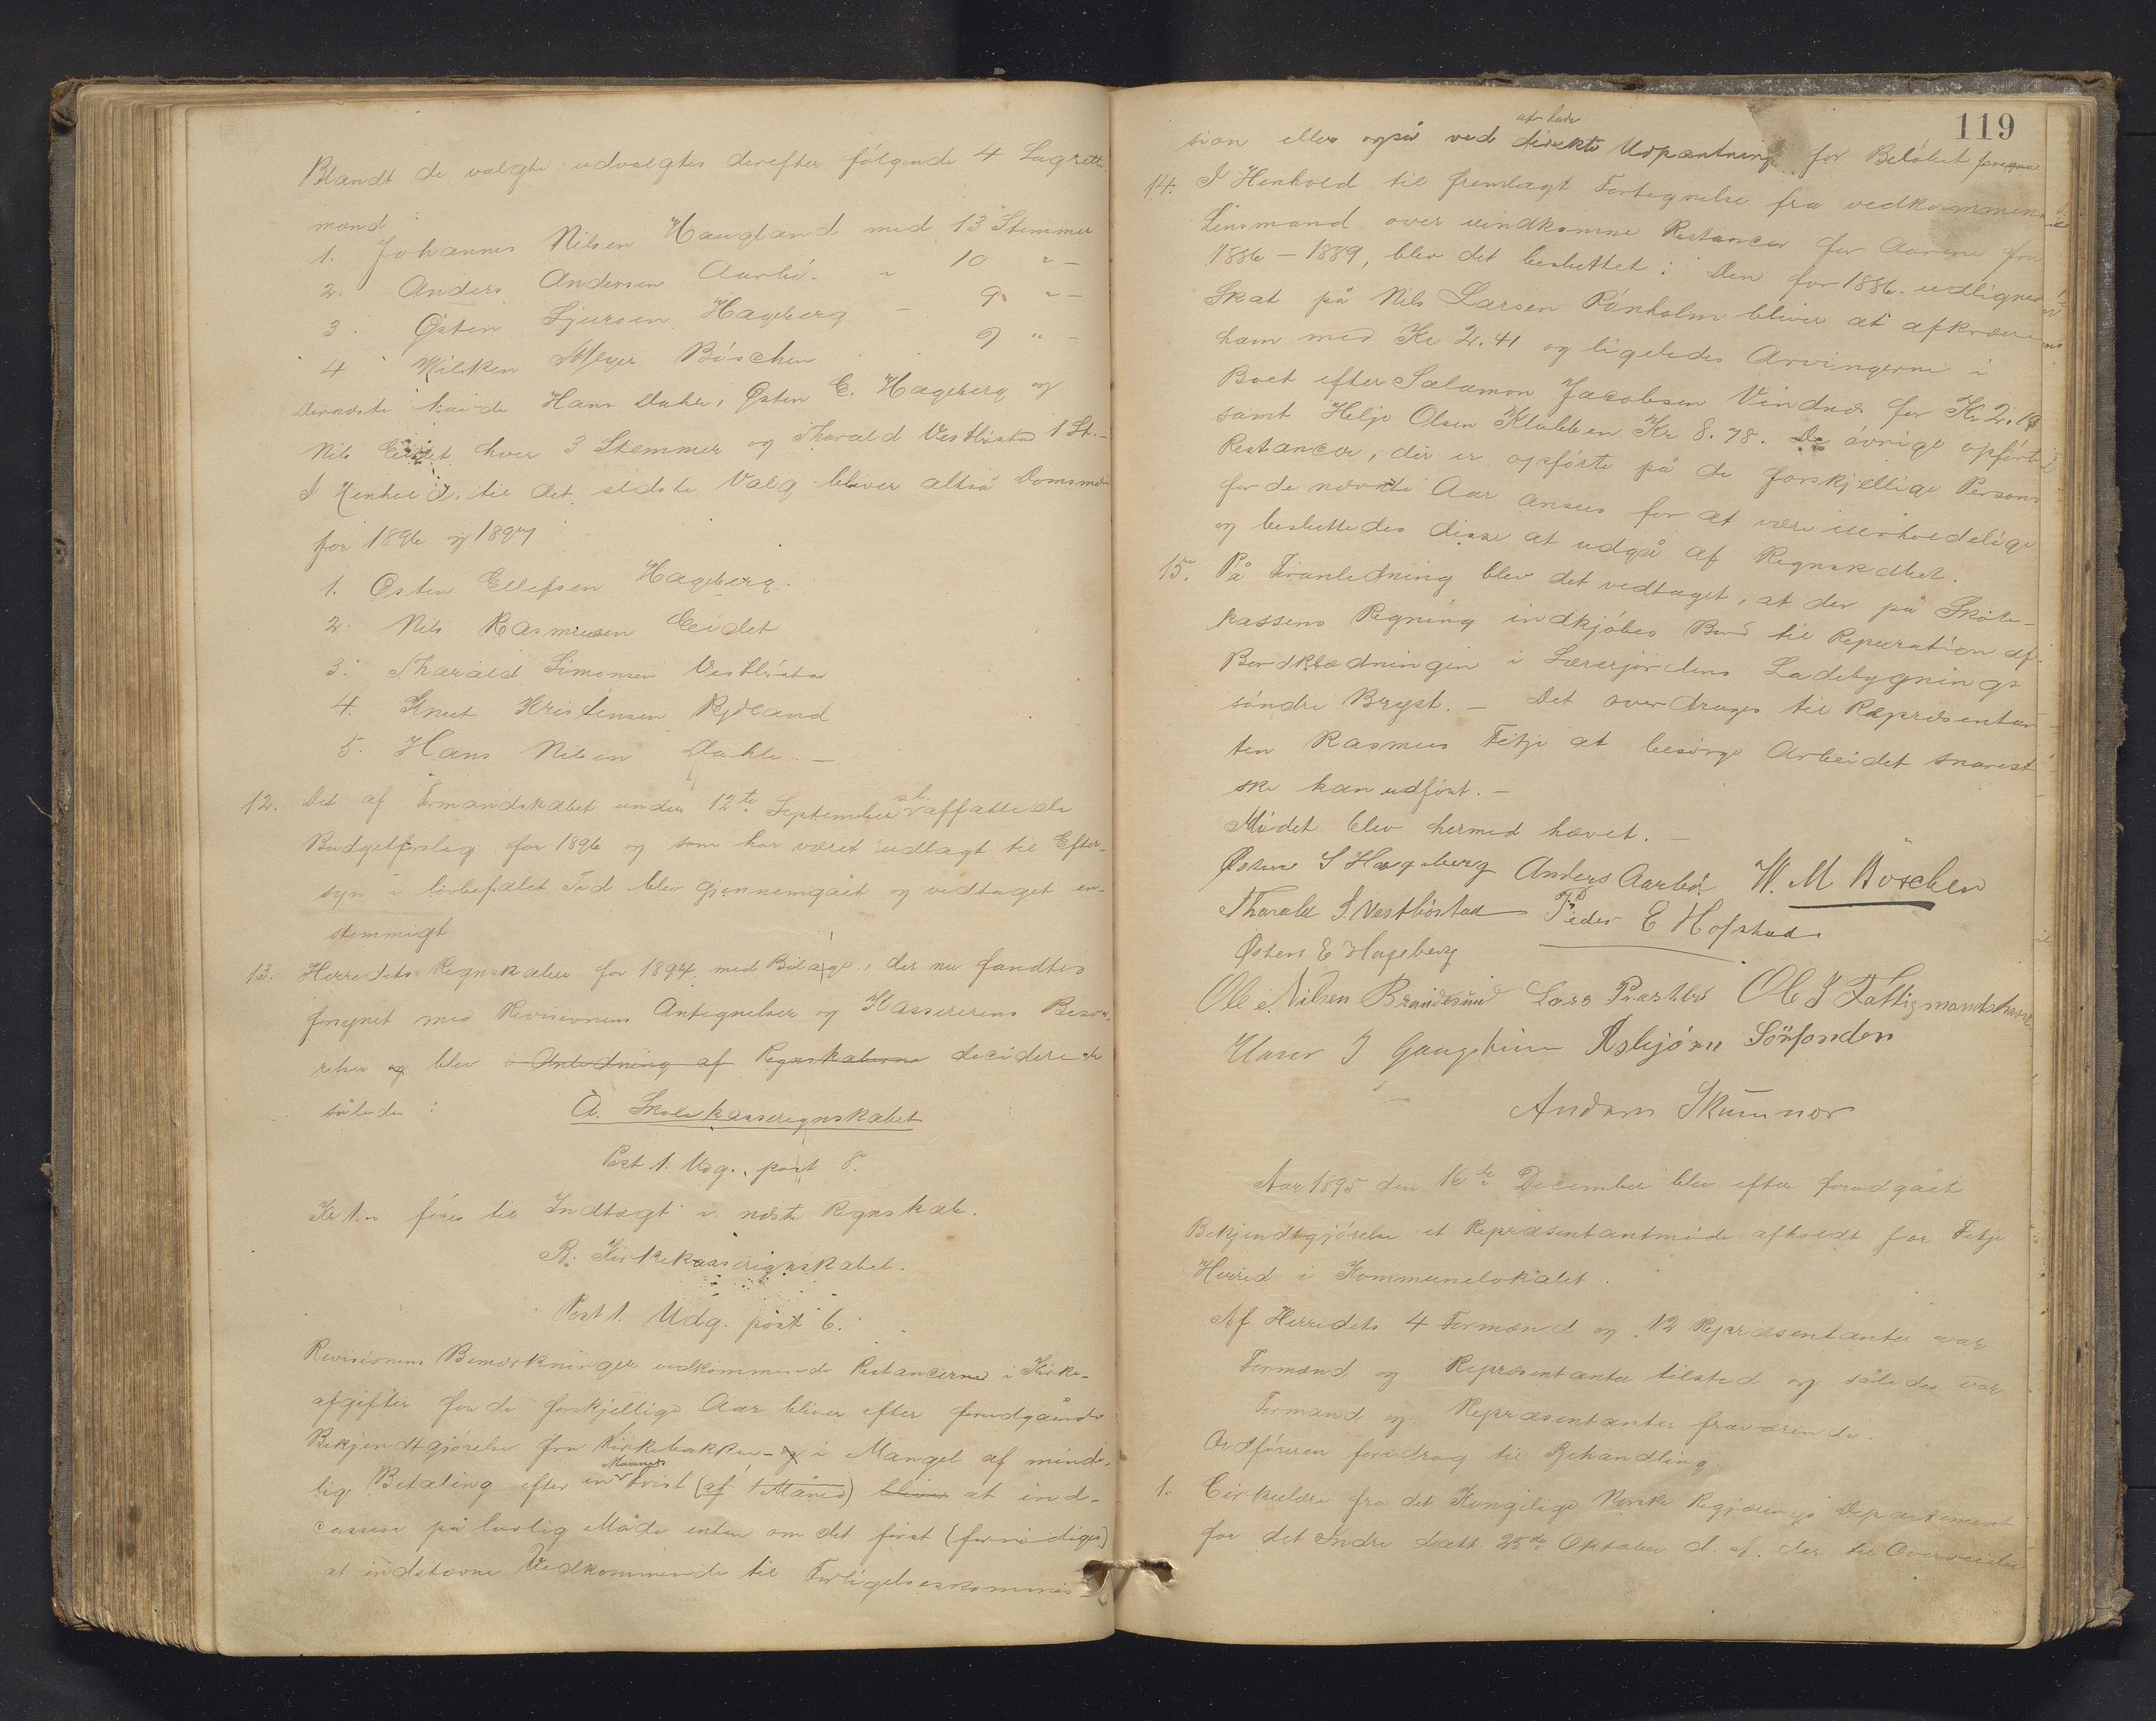 Blandt de valgte udvalgtes derefter følgende 4 Lagrette-
mænd:
1. Johannes Nilsen Haugland med 13 Stemmer
2. Anders Andersen Aarbø. " 10 " -
3. Østen Sjursen Hageberg - 9 " -
4 Wilken Meyer Böschen 9 " -
Dernæste havde Hans Dahle, Østen E. Hageberg og
Nils Eidet hver 3 Stemmer og Tharald Vestbøstad 1 St. -
I Henhold til det sidste Valg bliver altså Domsmænd
for 1896 og 1897
1. Østen Ellefsen Hageberg.
2. Nils Rasmussen Eidet
3. Tharald Simonsen Vestbøstad
4. Knut Kristensen Rydland
5. Hans Nilsen Dahle. -
12. Det af Formandskabet under 12te September d.å. affattede
Budgetforslag for 1896 og som har været udlagt til Efter-
syn i lovbefalet Tid blev gjennemgået og vedtaget en-
stemmigt
13. Herredets Regnskaber for 1894 med Bilage, der nu fandtes
forsynet med Revisionens Antegnelser og Kassererens Besva-
relser og blev i Anledning af Regnskaberne deciderede
således:
A. Skolekasseregnskabet
Post 1. Udg. post 8.
Kr 1.- føres til Indtægt i næste Regnskab.
B. Kirkekasseregnskabet.
Post 1. Udg. post 6.
Revisionens Bemærkninger vedkommende Restancerne i Kirke-
afgifter for de forskjellige Aar bliver efter forudgående
Bekjendtgjørelse fra Kirkebakken - og i Mangel af minde-
lig Betaling efter en Maaneds Frist (af 1 Måned) bliver at ind-
cassere på lovlig Måde enten om det først (fornødiges)
at indstævne Vedkommende til Forligelseskommis-
119
sion eller også ved direkte af hadr Udpantning for Beløbet foregaa
14. I Henhold til fremlagt Fortegnelse fra vedkommende
Lensmand over uindkomne Restancer for Aarene fra
1886 - 1889, blev det besluttet: Den for 1886 udlignede
Skat på Nils Larsen Rønholm bliver at afkræves
ham med Kr 2.41 og ligeledes Arvingerne i
Boet efter Salamon Jacobsen Vindnæs for Kr 2.19
samt Helje Olsen Klubben Kr 8.78. De øvrige opførte
Restancer, der er opførte på de forskjellige Persons
for de nævnte Aar ansees for at være uerholdelige
og besluttedes disse at udgå af Regnskabet.
15. På Foranledning blev det vedtaget, at der på Skole-
kassens Regning indkjøbes Bord til Reparation af
Bordklædningen i Lærerjordens Ladebygnings
søndre Bryst. - Det overdrages til Repræsentan-
ten Rasmus Fitje at besørge Arbeidet snarest
ske kan udført. -
Mødet blev hermed hævet. -
Østen S Hageberg Anders Aarbø W. M Böschen
Tharald S. Vestbøstad Peder E Hofstad
Østen E Hageberg
Ole Nilsen Brandesund Lars Prestbø Ole J Fattigmandshavn
J Asbjørn Sörfonden
Anders Skumnes
Aar 1895 den 16de December blev efter forudgået
Bekjendtgjørelse et Repræsentantmøde afholdt for Fitje
Herred i Kommunelokalet.
Af Herredets 4 Formænd og 12 Repræsentanter var
Formænd og Repræsentanter tilsted og således var
Formænd og Repræsentanter fraværende.
Ordføreren foredrog til Behandling.
1. Cirkulære fra det Kongelige Norske Regjerings Departement
for det Indre datt. 25de Oktober d. A. der til Overveielse